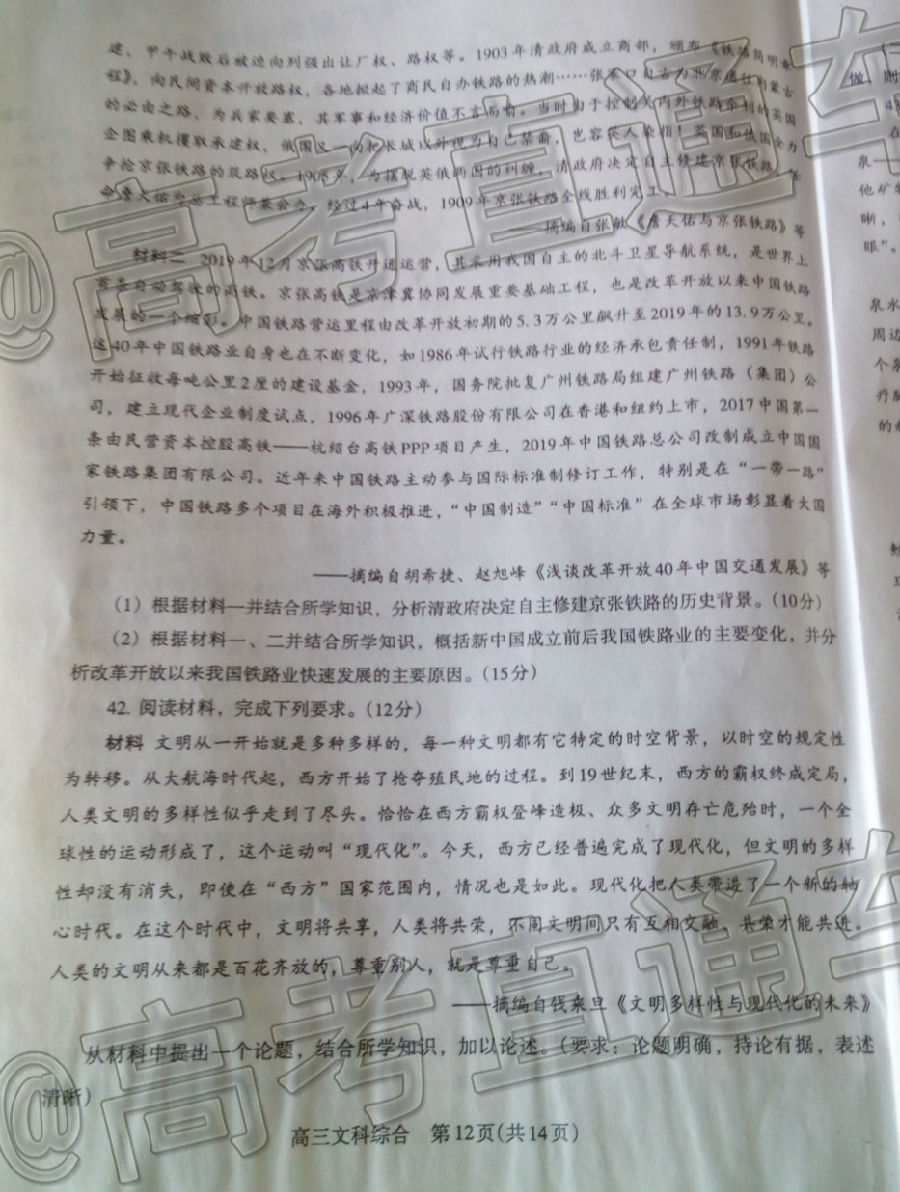 建，甲午战败后被迫向列强出让厂权、路权等。1903年清政府成立商部，颁布《铁路简明章
程》，向民间资本开放路权，各地掀起了商民自办铁路的热潮……张家口自古为北京通往内蒙古
的必由之路，为兵家要塞，其军事和经济价值不言而喻。当时由于控制关内外铁路余利的英国
企图乘机攫取承建权，俄国又一向把长城以外视为自己禁脔，岂容英人染指！英国和俄国全力
争抢京张铁路的筑路权。1905年，为摆脱英俄两国的纠缠，清政府决定自主修建京张铁路，任
命詹天佑为总工程师兼会办。经过4年奋战，1909年京张铁路全线胜利完工。
——摘编自张敏《詹天佑与京张铁路》等
材料二 2019年12月京张高铁开通运营，其采用我国自主的北斗卫星导航系统，是世界上
首条自动驾驶的高铁。京张高铁是京津冀协同发展重要基础工程，也是改革开放以来中国铁路
发展的一个缩影。中国铁路营运里程由改革开放初期的5.3万公里飙升至2019年的13.9万公里。
这40年中国铁路业自身也在不断变化，如1986年试行铁路行业的经济承包责任制，1991年铁路
开始征收每吨公里2厘的建设基金，1993年，国务院批复广州铁路局组建广州铁路（集团）公
司，建立现代企业制度试点，1996年广深铁路股份有限公司在香港和纽约上市，2017中国第一
条由民营资本控股高铁——杭绍台高铁PPP项目产生，2019年中国铁路总公司改制成立中国国
家铁路集团有限公司。近年来中国铁路主动参与国际标准制修订工作，特别是在“一带一路”
引领下，中国铁路多个项目在海外积极推进，“中国制造”“中国标准”在全球市场彰显着大国
力量。
——摘编自胡希捷、赵旭峰《浅谈改革开放40年中国交通发展》等
（1）根据材料一并结合所学知识，分析清政府决定自主修建京张铁路的历史背景。（10分）
（2）根据材料一、二并结合所学知识，概括新中国成立前后我国铁路业的主要变化，并分
析改革开放以来我国铁路业快速发展的主要原因。（15分）
42. 阅读材料，完成下列要求。（12分）
材料 文明从一开始就是多种多样的，每一种文明都有它特定的时空背景，以时空的规定性
为转移。从大航海时代起，西方开始了抢夺殖民地的过程。到19世纪末，西方的霸权终成定局，
人类文明的多样性似乎走到了尽头。恰恰在西方霸权登峰造极、众多文明存亡危殆时，一个全
球性的运动形成了，这个运动叫“现代化”。今天，西方已经普遍完成了现代化，但文明的多样
性却没有消失，即使在“西方”国家范围内，情况也是如此。现代化把人类带进了一个新的轴
心时代。在这个时代中，文明将共享，人类将共荣，不同文明间只有互相交融、共荣才能共进。
人类的文明从来都是百花齐放的，尊重别人，就是尊重自己。
——摘编自钱乘旦《文明多样性与现代化的未来》
从材料中提出一个论题，结合所学知识，加以论述。（要求：论题明确，持论有据，表述
清晰）
高三文科综合 第12页(共14页)
@高考直通车
@高考直通车
做，则
泉——
他矿
晰，
眼”。
泉水
周边
个泉
疗
的